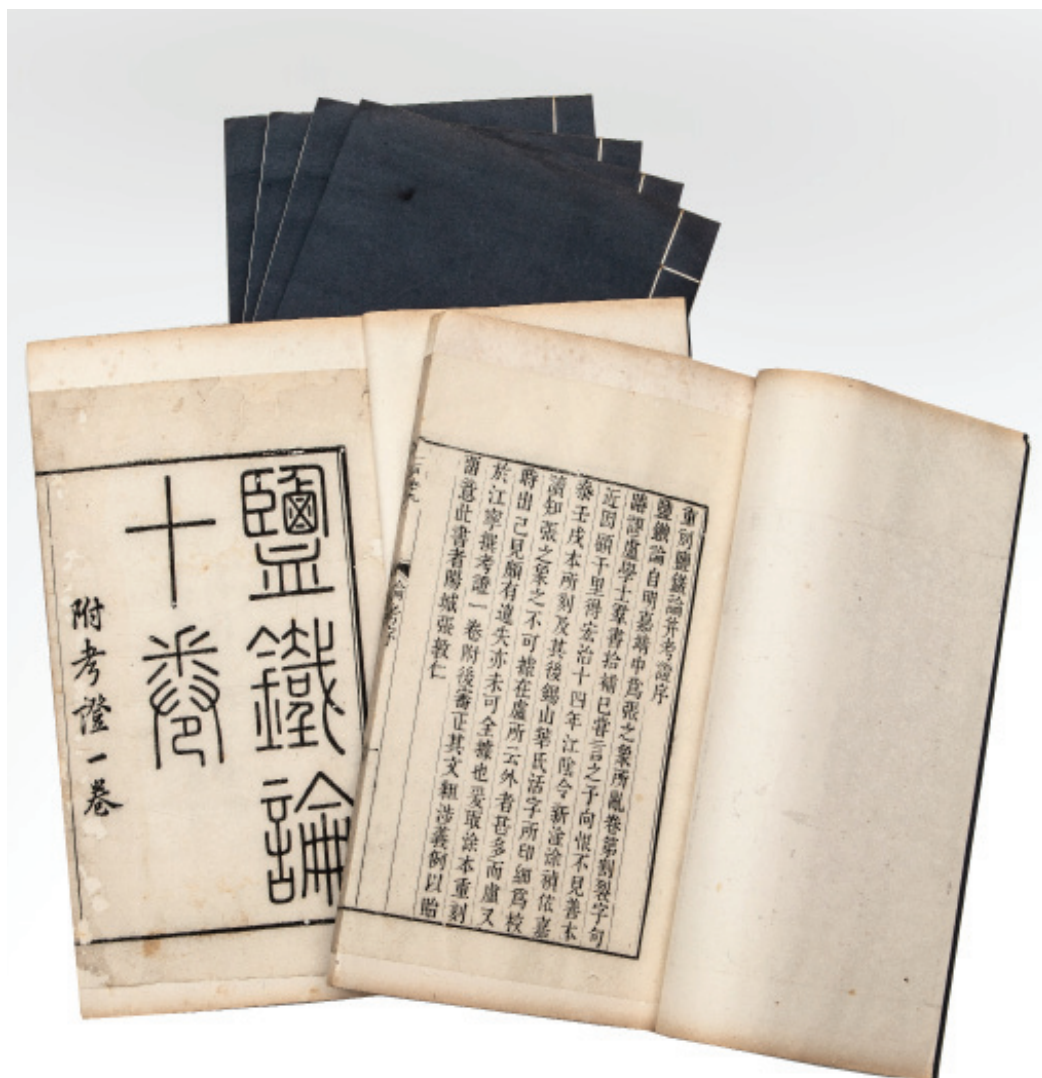 鹽鐵論
十卷
附考證一卷
重刻鹽鐵論并考證序
鹽鐵論自明嘉靖中爲張之象所亂卷第割裂字句
謬盧學士羣書拾補已嘗言之予向恨不見善本
近因顧千里得宏治十四年江陰令新淦涂禎依嘉
泰壬戌本所刻及其後錫山華氏活字所印細爲校
讀知張之象之不可據在盧所云外者甚多而盧又
時出己見頗有違失亦未可全據也爰取涂本重刻
於江寧撰考證一卷附後審正其文粗涉義例以貽
留意此書者陽城張敦仁